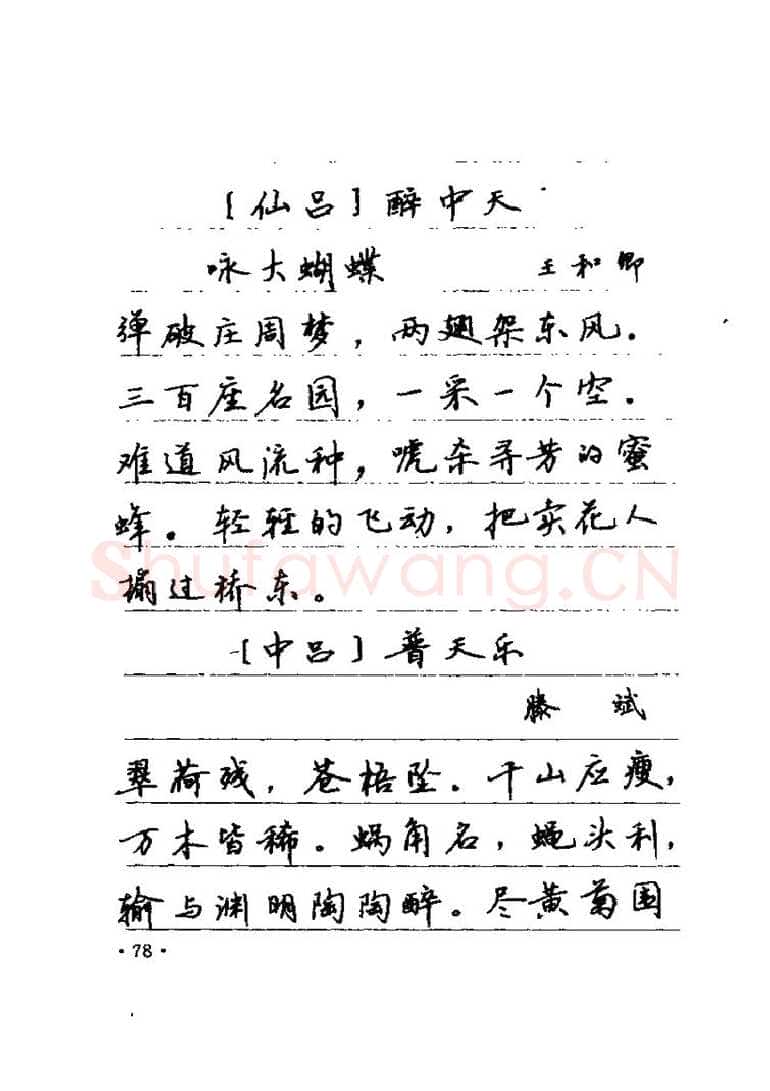 ［仙吕］醉中天
咏大蝴蝶 王和卿
弹破庄周梦，两翅架东风.
三百座名园，一采一个空.
难道风流种，唬杀寻芳的蜜
蜂。轻轻的飞动，把卖花人
搧过桥东。
［中吕］普天乐
滕 斌
翠荷残，苍梧坠.千山应瘦，
万木皆稀。蜗角名，蝇头利，
输与渊明陶陶醉。尽黄菊围
·78·
Shufawang.CN